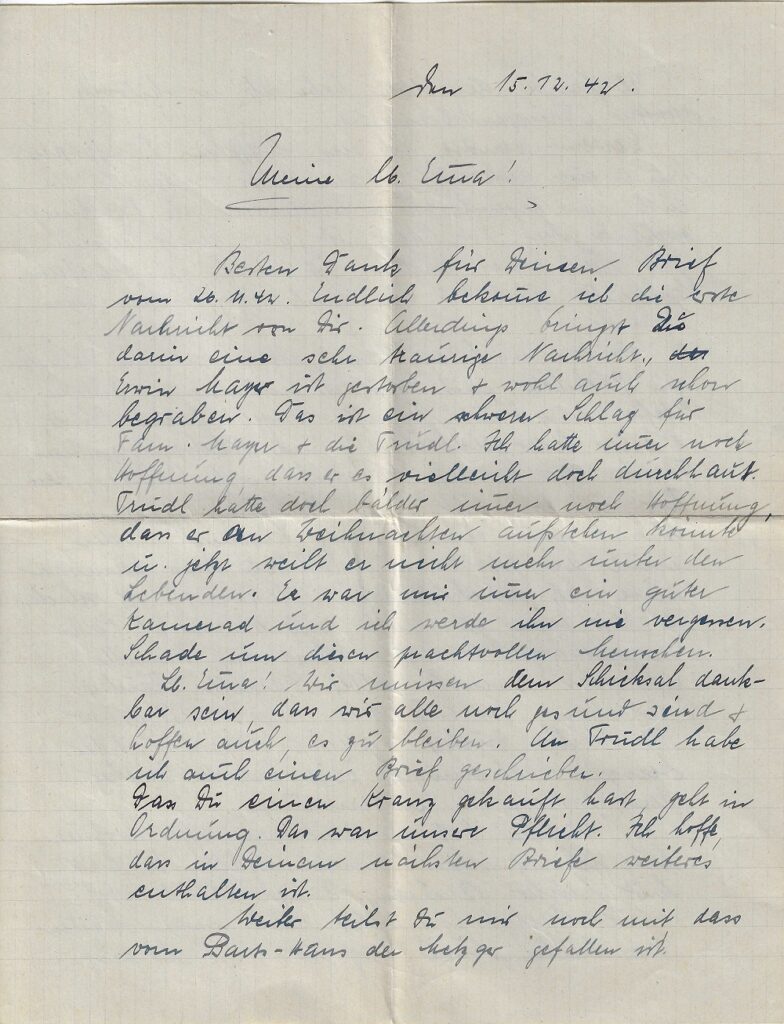 den 15.12.42.
Meine lb. Erna!
Besten Dank für Deinen Brief
vom 26.11.42. Endlich bekome ich die erste
Nachricht von Dir. Allerdings bringst Du
darin eine sehr traurige Nachricht.,
Erwin Mayer ist gestorben + wohl auch schon
begraben. Das ist ein schwerer Schlag für
Fam. Mayer + die Trudl. Ich hatte imer noch
Hoffnung, dass er es vielleicht doch durchhaut.
Trudl hatte doch imer noch Hoffnung,
dass er an Weihnachten aufstehen könnte
u. jetzt weilt er nicht mehr unter den
Lebenden. Er war mir imer ein guter
Kamerad und ich werde ihn nie vergessen.
Schade um diesen prachtvollen Menschen.
Lb. Erna! Wir müssen dem Schicksal dank-
bar sein, dass wir alle noch gesund sind +
hoffen auch, es zu bleiben. An Trudl habe
ich auch einen Brief geschrieben.
Dass Du einen Kranz gekauft hast, geht in
Ordnung. Das war unsere Pflicht. Ich hoffe,
dass in Deinem nächsten Briefe weiteres
enthalten ist.
Weiter teilst Du mir noch mit, dass
vom -Hans der Metzger gefallen ist.